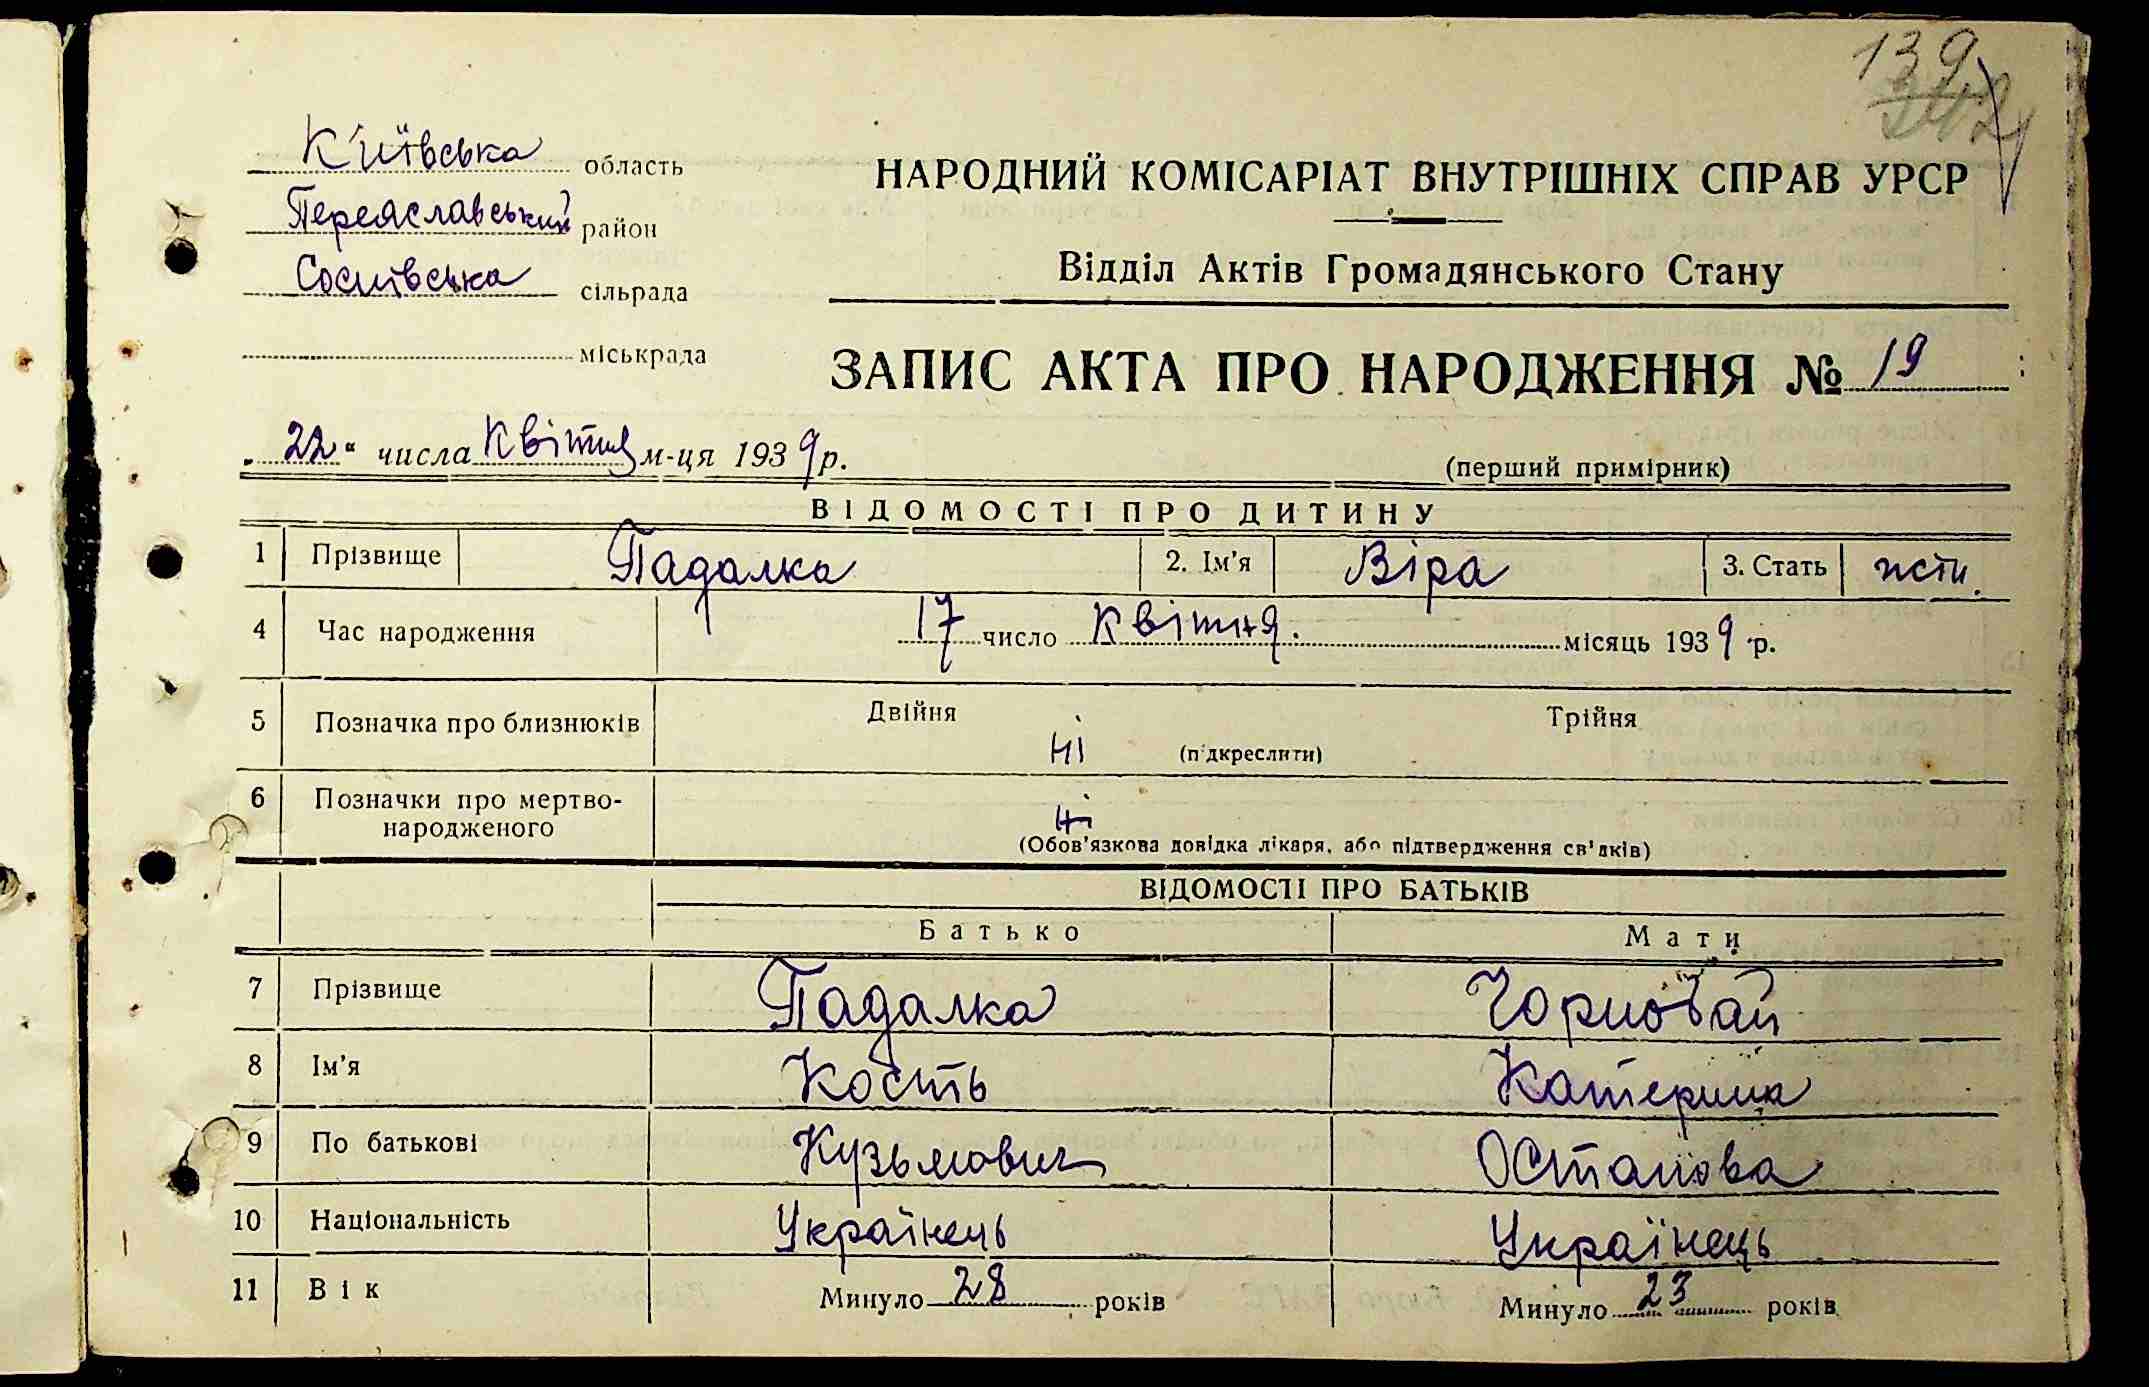 139
342
Київська область
Переяславський район
Сосnівська сільрада
міськрада
НАРОДНИЙ КОМІСАРІАТ ВНУТРІШНІХ СПРАВ УРСР
Відділ Актів Громадянського Стану
ЗАПИС АКТА ПРО НАРОДЖЕННЯ № 19
„22“ числа Квітня м-ця 1939 р.
(перший примірник)
ВІДОМОСТІ ПРО ДИТИНУ
1 Прізвище Падалка 2. Ім'я Віра 3. Стать жін.
4 Час народження 17 число Квітня. місяць 1939 р.
5 Позначка про близнюків Двійня Трійня
ні (підкреслити)
6 Позначки про мертво-
народженого ні
(Обов'язкова довідка лікаря, або підтвердження св'яків)
ВІДОМОСТІ ПРО БАТЬКІВ
Батько Мати
7 Прізвище Падалка Чорновай
8 Ім'я Кость Катерина
9 По батькові Кузьмович Остапова
10 Національність Українець Українець
11 Вік Минуло 28 років Минуло 23 років